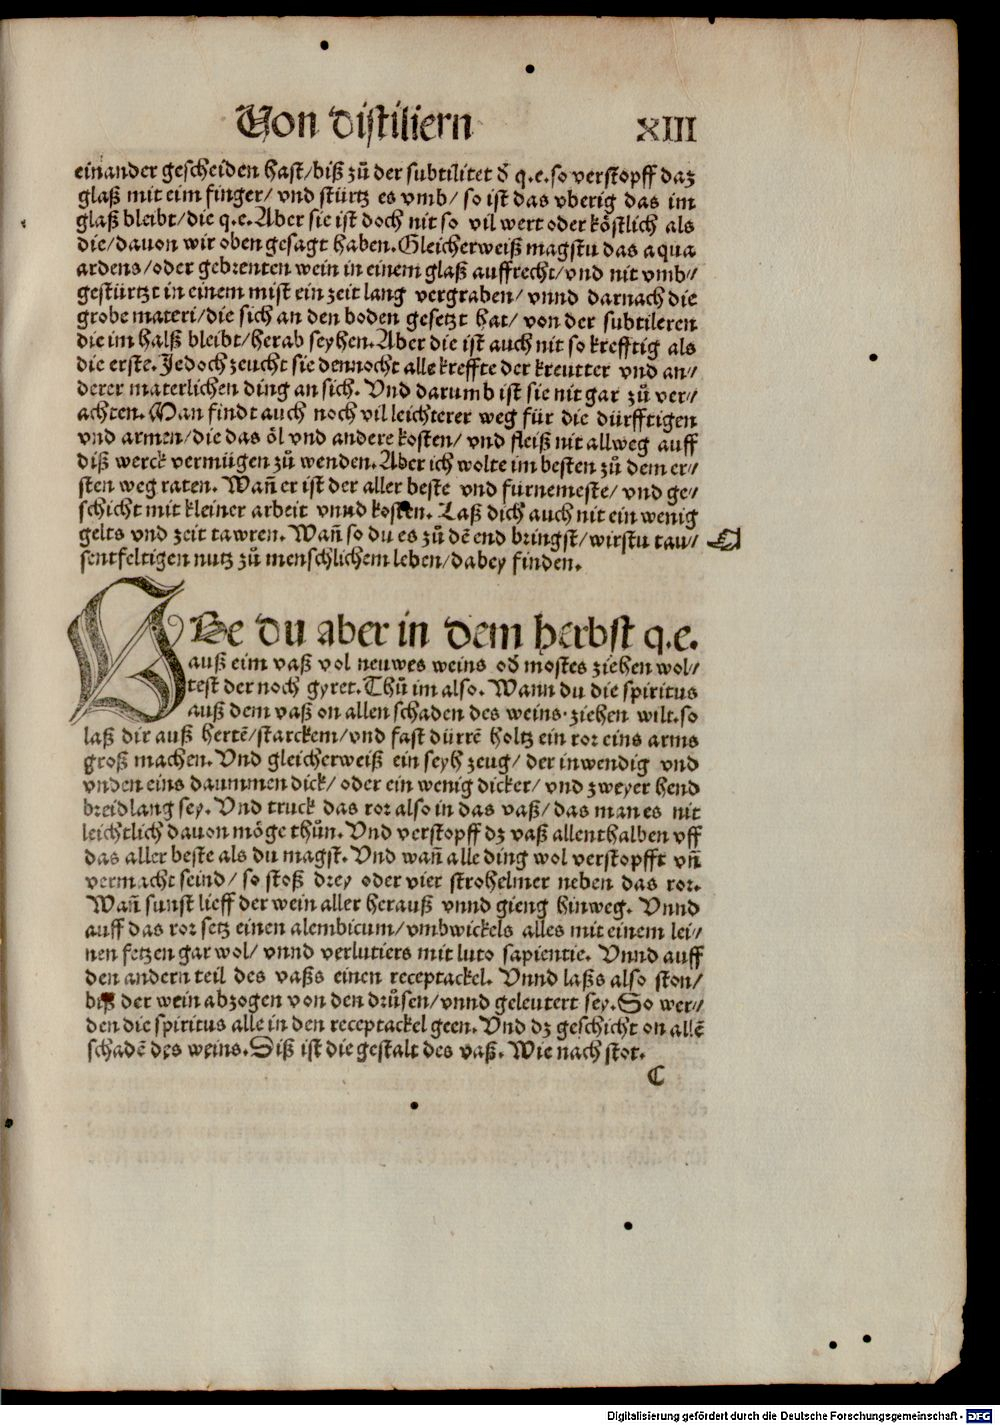 Von distiliern XIII
einander gescheiden hast/biß zů der subtilitet d̕ q.e.so verstopff daz
glaß mit eim finger/ vnd stürtz es vmb/ so ist das vberig das im
glaß bleibt/die q.e. Aber sie ist doch nit so vil wert oder köstlich als
die/dauon wir oben gesagt haben. Gleicherweiß magstu das aqua
ardens/oder gebrenten wein in einem glaß auffrecht/vnd nit vmb//
gestürtzt in einem mist ein zeit lang vergraben/ vnnd darnach die
grobe materi/die sich an den boden gesetzt hat/ von der subtileren
die im halß bleibt/herab seyhen. Aber die ist auch nit so krefftig als
die erste. Jedoch zeucht sie dennocht alle kreffte der kreutter vnd an//
derer materlichen ding an sich. Vnd darumb ist sie nit gar zů ver//
achten. Man findt auch noch vil leichterer weg für die dürfftigen
vnd armen/die das öl vnd andere kosten/ vnd fleiß nit allweg auff
diß werck vermügen zů wenden. Aber ich wolte im besten zů dem er//
sten weg raten. Wañ er ist der aller beste vnd fürnemeste/ vnd ge//
schicht mit kleiner arbeit vnnd kosten. Laß dich auch nit ein wenig
gelts vnd zeit tawren. Wañ so du es zů dē end bringst/wirstu tau//
sentfeltigen nutz zů menschlichem leben/dabey finden.
WBe du aber in dem herbst q.e.
auß eim vaß vol neuwes weins od̕ mostes ziehen wol//
test der noch gyret. Thů im also. Wann du die spiritus
auß dem vaß on allen schaden des weins ziehen wilt.so
laß dir auß hertē/starckem/vnd fast dürrē holtz ein ror eins arms
groß machen. Vnd gleicherweiß ein seyh zeug/ der inwendig vnd
vnden eins daummen dick/ oder ein wenig dicker/ vnd zweyer hend
breid lang sey. Vnd truck das ror also in das vaß/ das man es nit
leichtlich dauon möge thůn. Vnd verstopff dz vaß allenthalben vff
das aller beste als du magst. Vnd wañ alle ding wol verstopfft vñ
vermacht seind/ so stoß drey oder vier strohelmer neben das ror.
Wañ sunst lieff der wein aller herauß vnnd gieng hinweg. Vnnd
auff das ror setz einen alembicum/vmbwickels alles mit einem lei//
nen fetzen gar wol/ vnnd verlutiers mit luto sapientie. Vnnd auff
den andern teil des vaßs einen receptackel. Vnnd laßs also ston/
biß der wein abzogen von den drůsen/vnnd geleutert sey. So wer//
den die spiritus alle in den receptackel geen. Vnd dz geschicht on allē
schadē des weins. Diß ist die gestalt des vaß. Wie nach stot.
C
Digitalisierung gefördert durch die Deutsche Forschungsgemeinschaft - DFG